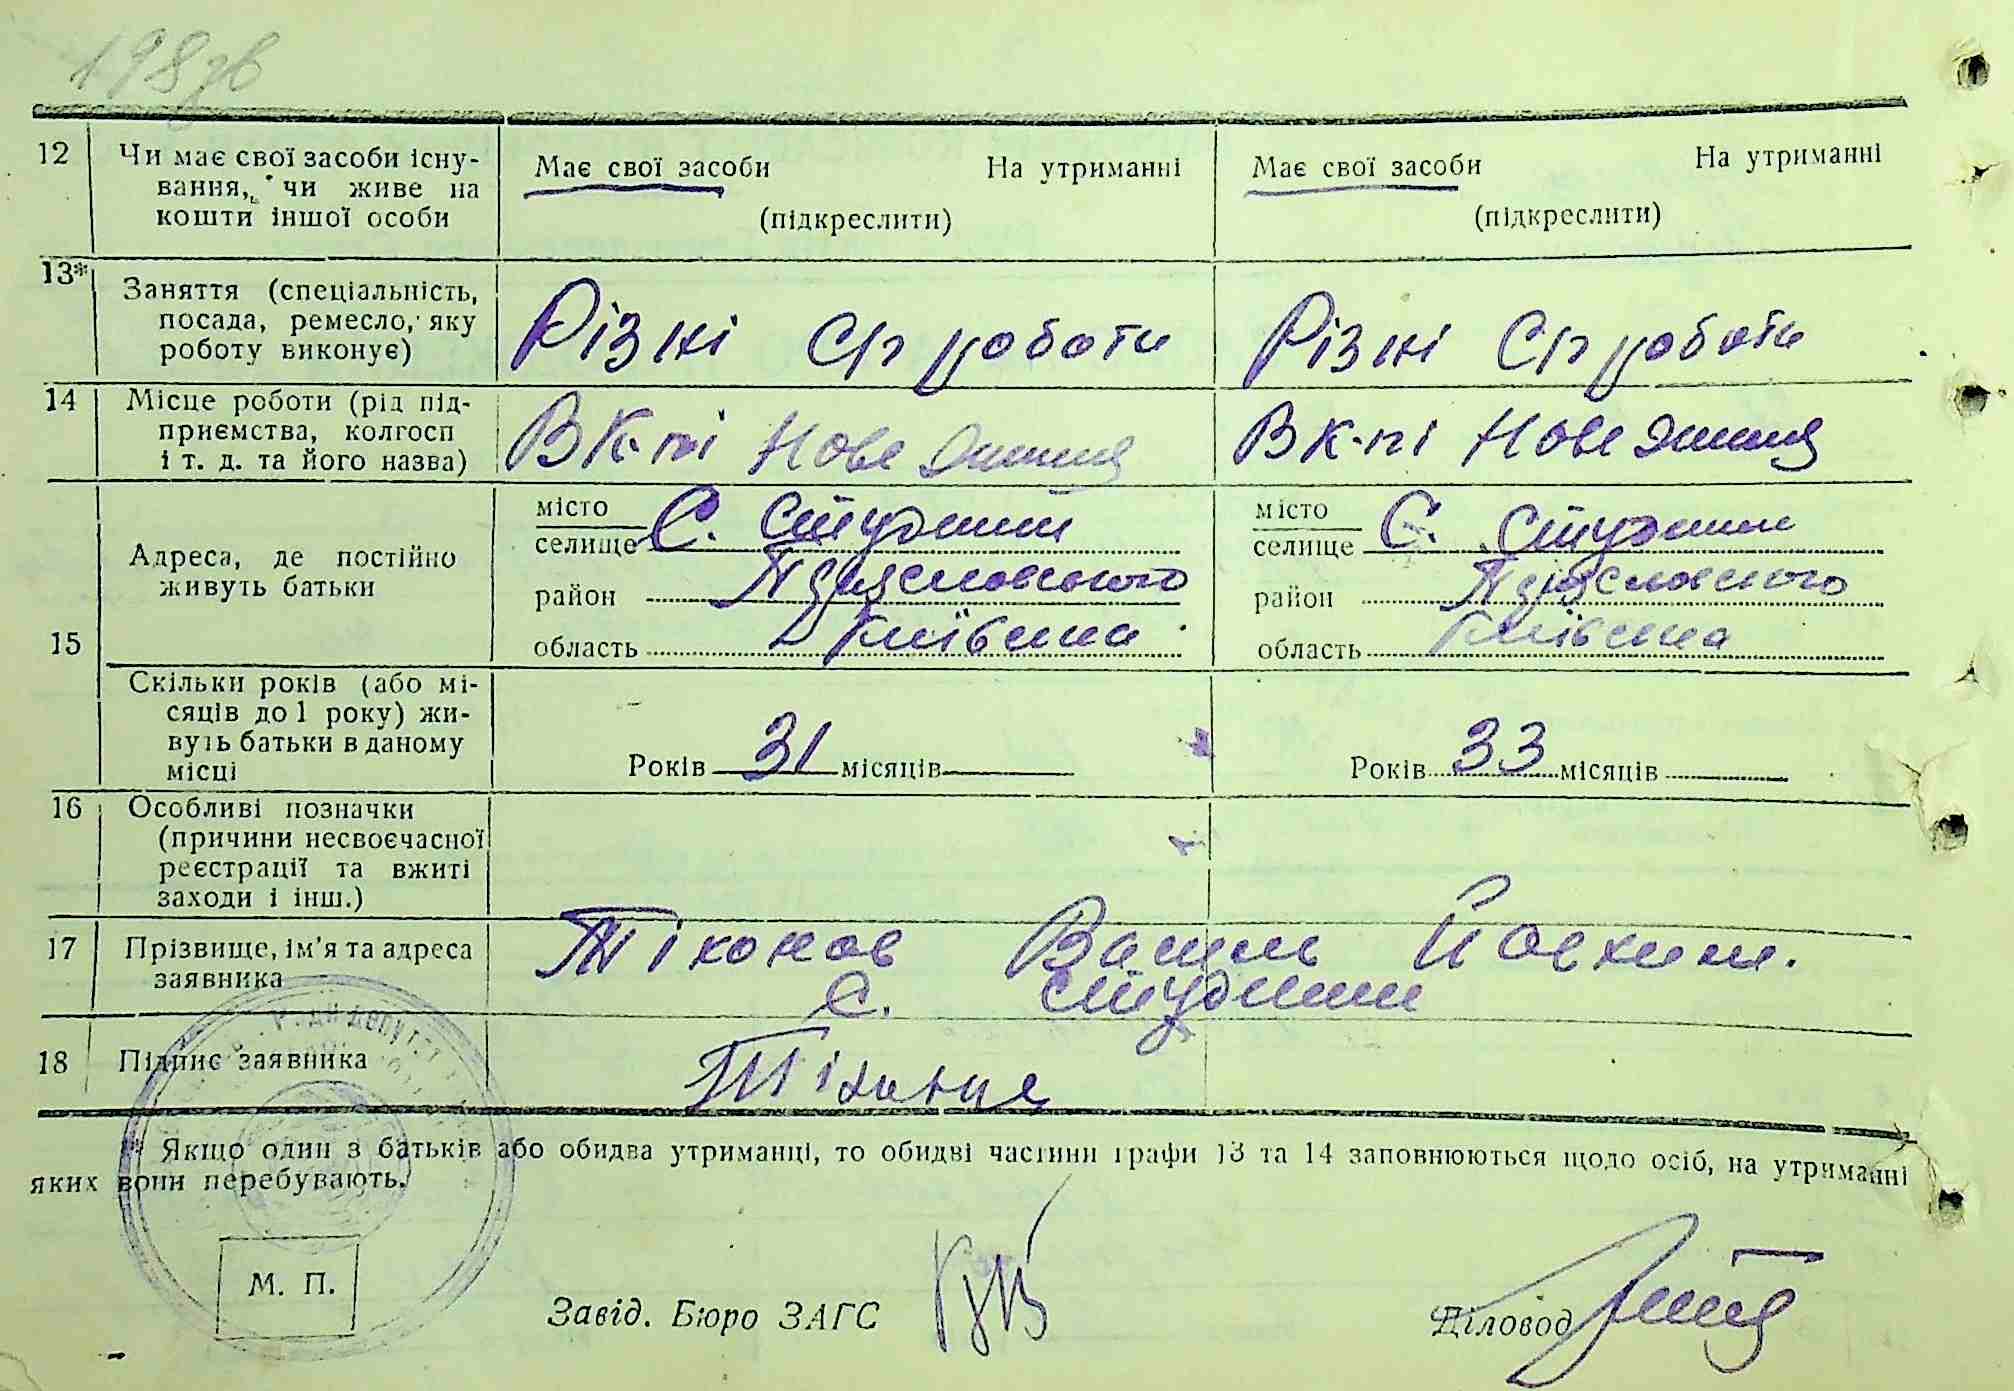 198зв
12 Чи має свої засоби існу-
вання, чи живе на
кошти іншої особи
Має свої засоби На утриманні
(підкреслити)
Має свої засоби На утриманні
(підкреслити)
13* Заняття (спеціальність,
посада, ремесло, яку
роботу виконує)
Різні С/г роботи
Різні С/г роботи
14 Місце роботи (рід під-
приємства, колгосп
і т. д. та його назва)
В к-пі Нове Життя
В к-пі Нове Життя
15 Адреса, де постійно
живуть батьки
місто
селище С. Студники
район
область Київська
місто
селище С. Студники
район
область Київська
Скільки років (або мі-
сяців до 1 року) жи-
вуть батьки в даному
місці
Років 31 місяців
Років 33 місяців
16 Особливі позначки
(причини несвоєчасної
реєстрації та вжиті
заходи і інш.)
17 Прізвище, ім'я та адреса
заявника
Тіхонов Василь
С. Студники
18 Підпис заявника
* Якщо один з батьків або обидва утриманці, то обидві частини графи 13 та 14 заповнюються щодо осіб, на утриманні
яких вони перебувають.
М. П.
Завід. Бюро ЗАГС
Діловод